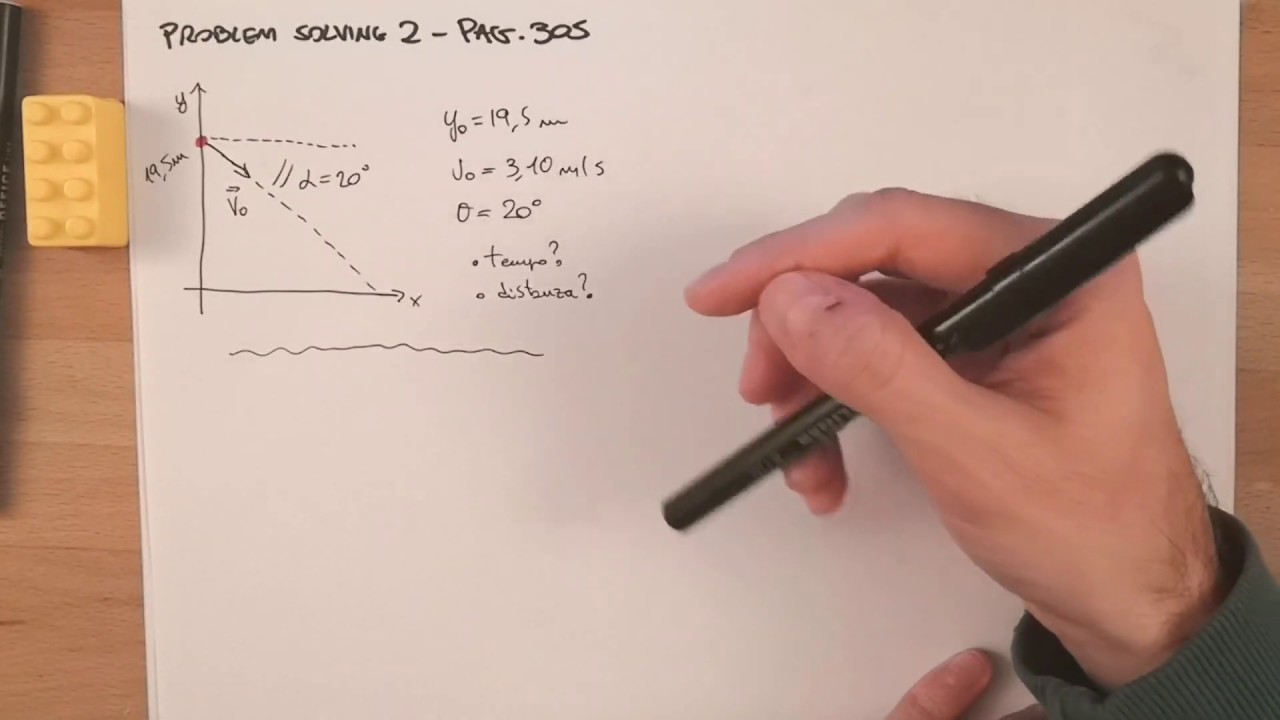 PROBLEM SOLVING 2 - PAG. 305
y
19,5m
V₀
α = 20°
x
y₀ = 19,5 m
v₀ = 3,10 m/s
θ = 20°
• tempo?
• distanza?
OFFICE